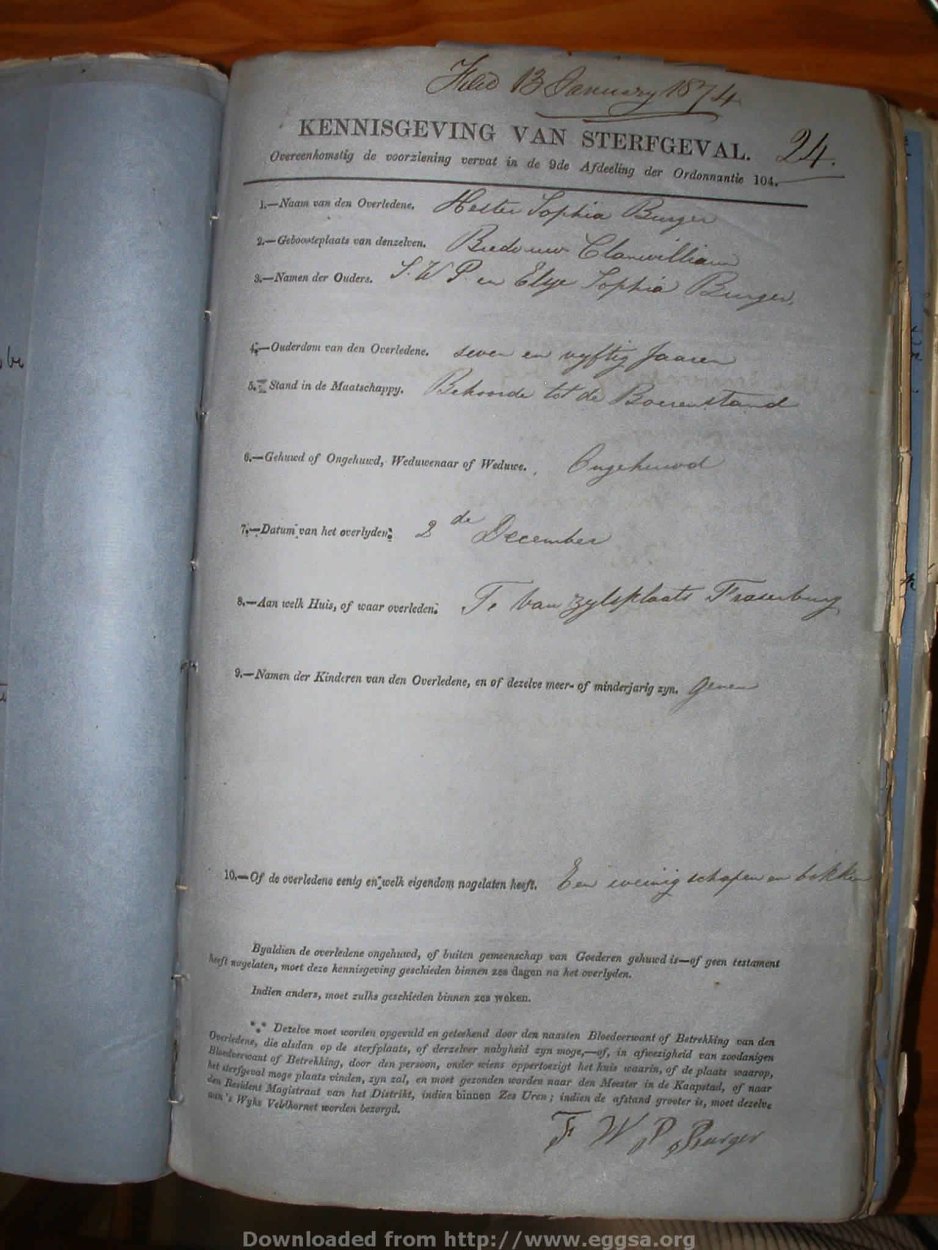 Filed 13 January 1874
KENNISGEVING VAN STERFGEVAL. 24.
Overeenkomstig de voorziening vervat in de 9de Afdeeling der Ordonnantie 104.
1.—Naam van den Overledene. Hester Sophia Burger
2.—Geboorteplaats van denzelven. Biedouw Clanwilliam
3.—Namen der Ouders. S. W P. en Elsje Sophia Burger,
4.—Ouderdom van den Overledene. seven en vyftig Jaaren
5.—Stand in de Maatschappy. Behoorde tot de Boerenstand
6.—Gehuwd of Ongehuwd, Weduwenaar of Weduwe. Ongehuwd
7.—Datum van het overlyden. 2de December
8.—Aan welk Huis, of waar overleden. Te Van Zylsplaats Fraserburg
9.—Namen der Kinderen van den Overledene, en of dezelve meer- of minderjarig zyn. genen
10.—Of de overledene eenig en welk eigendom nagelaten heeft. Een weinig schapen en bokken
Byaldien de overledene ongehuwd, of buiten gemeenschap van Goederen gehuwd is—of geen testament
heeft nagelaten, moet deze kennisgeving geschieden binnen zes dagen na het overlyden.
Indien anders, moet zulks geschieden binnen zes weken.
*** Dezelve moet worden opgevuld en geteekend door den naasten Bloedverwant of Betrekking van den
Overledene, die alsdan op de sterfplaats, of derzelver nabyheid zyn moge,—of, in afwezigheid van zoodanigen
Bloedverwant of Betrekking, door den persoon, onder wiens oppertoezigt het huis waarin, of de plaats waarop,
het sterfgeval moge plaats vinden, zyn zal, en moet gezonden worden naar den Meester in de Kaapstad, of naar
den Resident Magistraat van het Distrikt, indien binnen Zes Uren; indien de afstand grooter is, moet dezelve
aan 's Wyks Veldkornet worden bezorgd.
F W P Burger
Downloaded from http://www.eggsa.org